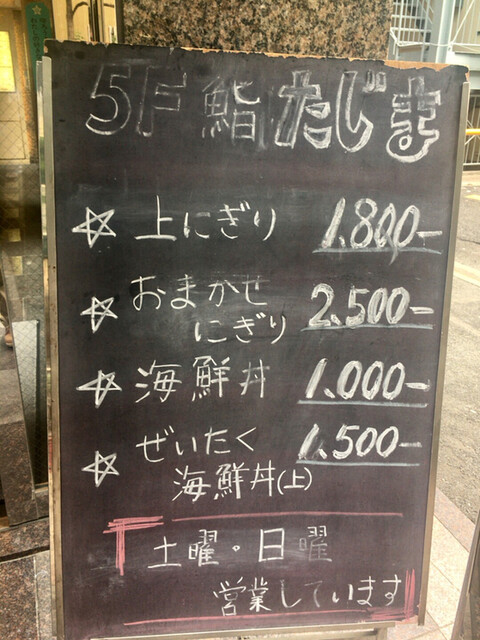 5F 鮨 たじま
☆ 上にぎり 1.800-
☆ おまかせ
にぎり 2.500-
☆ 海鮮丼 1.000-
☆ ぜいたく 1.500-
海鮮丼(上)
土曜・日曜
営業しています